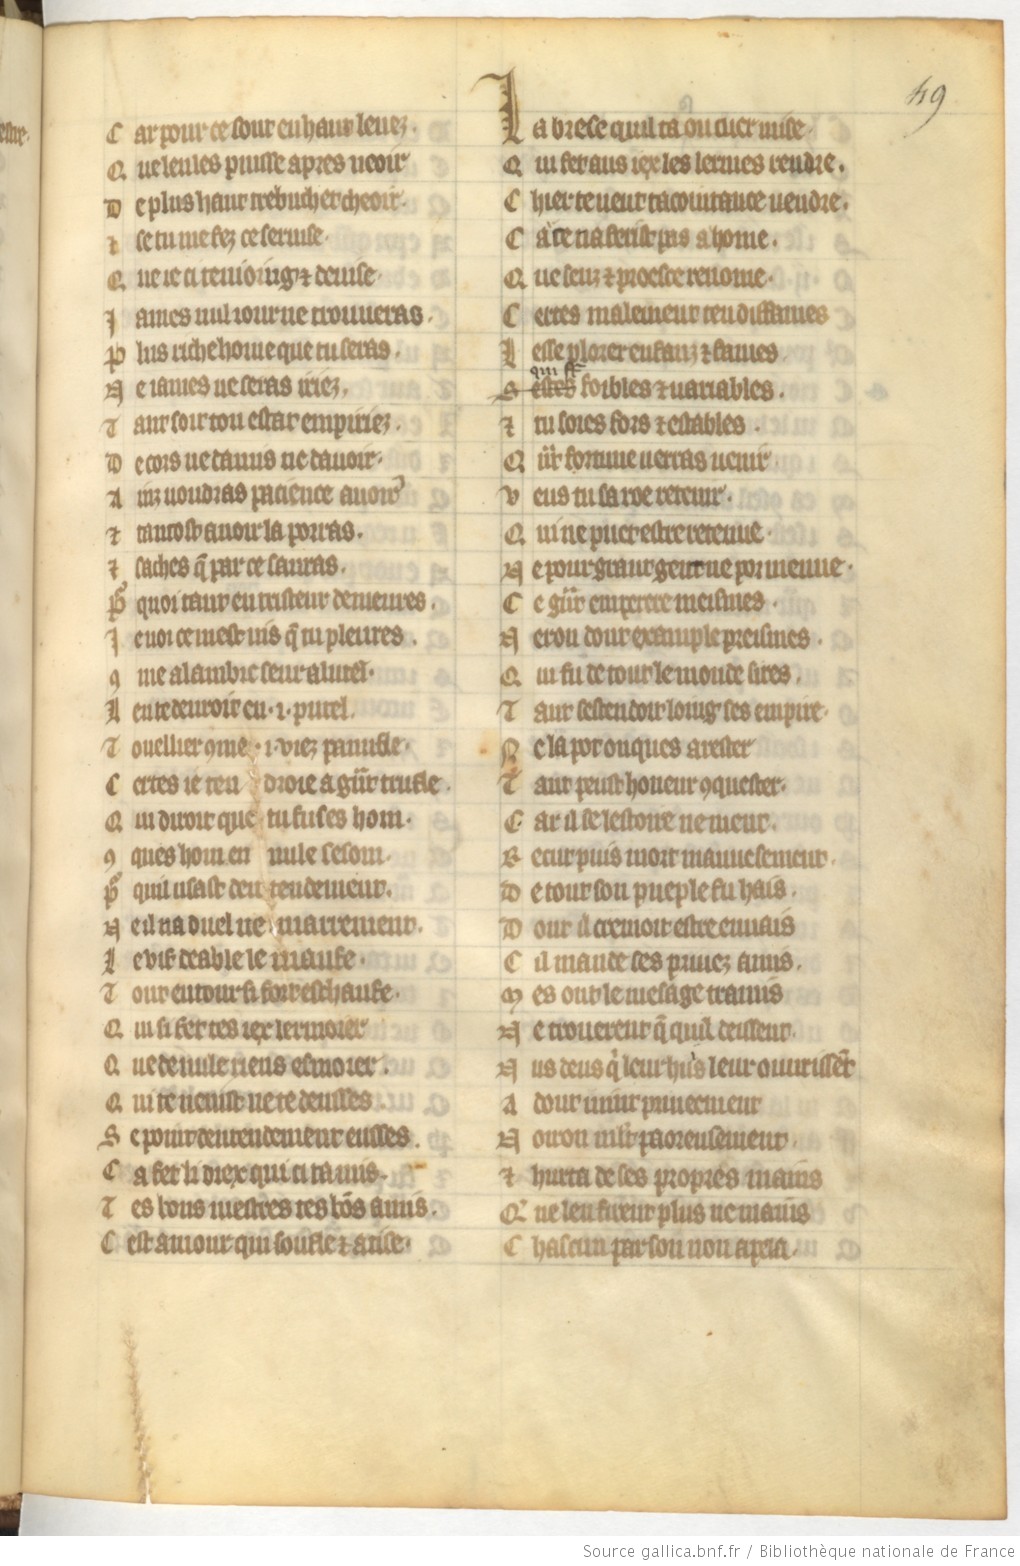 49
C ar pour ce sont en haut leuez.
Q ue leules puisse apres ueoir
D e plus haut trebucher cheoir.
⁊ se tu me fez ce seruise.
Q ue ie ci
J ames nul iour ne trouueras.
P lus riche home que tu seras.
N e iames ne seras iriez.
T ant soit ton estat empiriez.
D e cors ne damis ne dauoir.
A inz uoudras pacience auoir
⁊ tantost auoir la porras.
⁊ saches q̃ par ce sauras.
P̃ quoi tant en tristeur demeures.
J e uoi ce mest uis q̃ tu pleures.
ꝯ me alambic seur alutel.
L en te deuroit en .i. putel.
T ouellier ꝯme .i. viez panufle.
C ertes ie ten droie a gñt trufle.
Q ui diroit que tu fuses hom.
ꝯ ques hom en nule seson.
P̃ quil usast dentendement.
N e il na duel ne marrement.
L e vif deable le maufe.
T on entour si fort eschaufe.
Q ui si fet tes iex lermoier
Q ue de nule riens esmoier.
Q ui te uenist ne te deusses.
S e point dentendement eusses.
C a fet li diex qui ci ta mis.
T es bons mestres tes bõs amis.
C est amour qui soufle ⁊ atise.
L a brese quil ta ou cuer mise.
Q ui fet aus iex les lermes rendre.
C hier te ueut tacointance uendre.
C ar ce nafierist pas a home.
Q ue senz ⁊ proesce renome.
C ertes malement ten diffames
L esse plorer enfanz ⁊ fames
qui st̃
S estes foibles ⁊ uariables.
⁊ tu soies fors ⁊ estables.
Q ñt fortune uerras uenir.
V eus tu sa roe retenir.
Q ui ne puet estre retenue.
N e pour grant gent ne por menue.
C e gñt emperere meismes.
N eron dont example preismes.
Q ui fu de tout le monde sires.
T ant sestendoit loing ses empire.
N e la pot onques arester
T ant peust honeur ꝯquester.
C ar il se lestoire ne ment.
R ecut puis mort mauuesement.
D e tout son pueple fu hais.
D ont il cremoit estre enuais
C il mande ses priuez amis.
M es onc le mesage tramis
N e trouerent q̃ quil deissent.
N us deus q̃ leur huis leur ouurissẽt
A dont uint priueement
N oron mlt̃ paoreusement.
⁊ hurta de ses propres mains
Q̃ ne len firent plus ne mains
C hascun par son non apela.
Source gallica.bnf.fr / Bibliothèque nationale de France